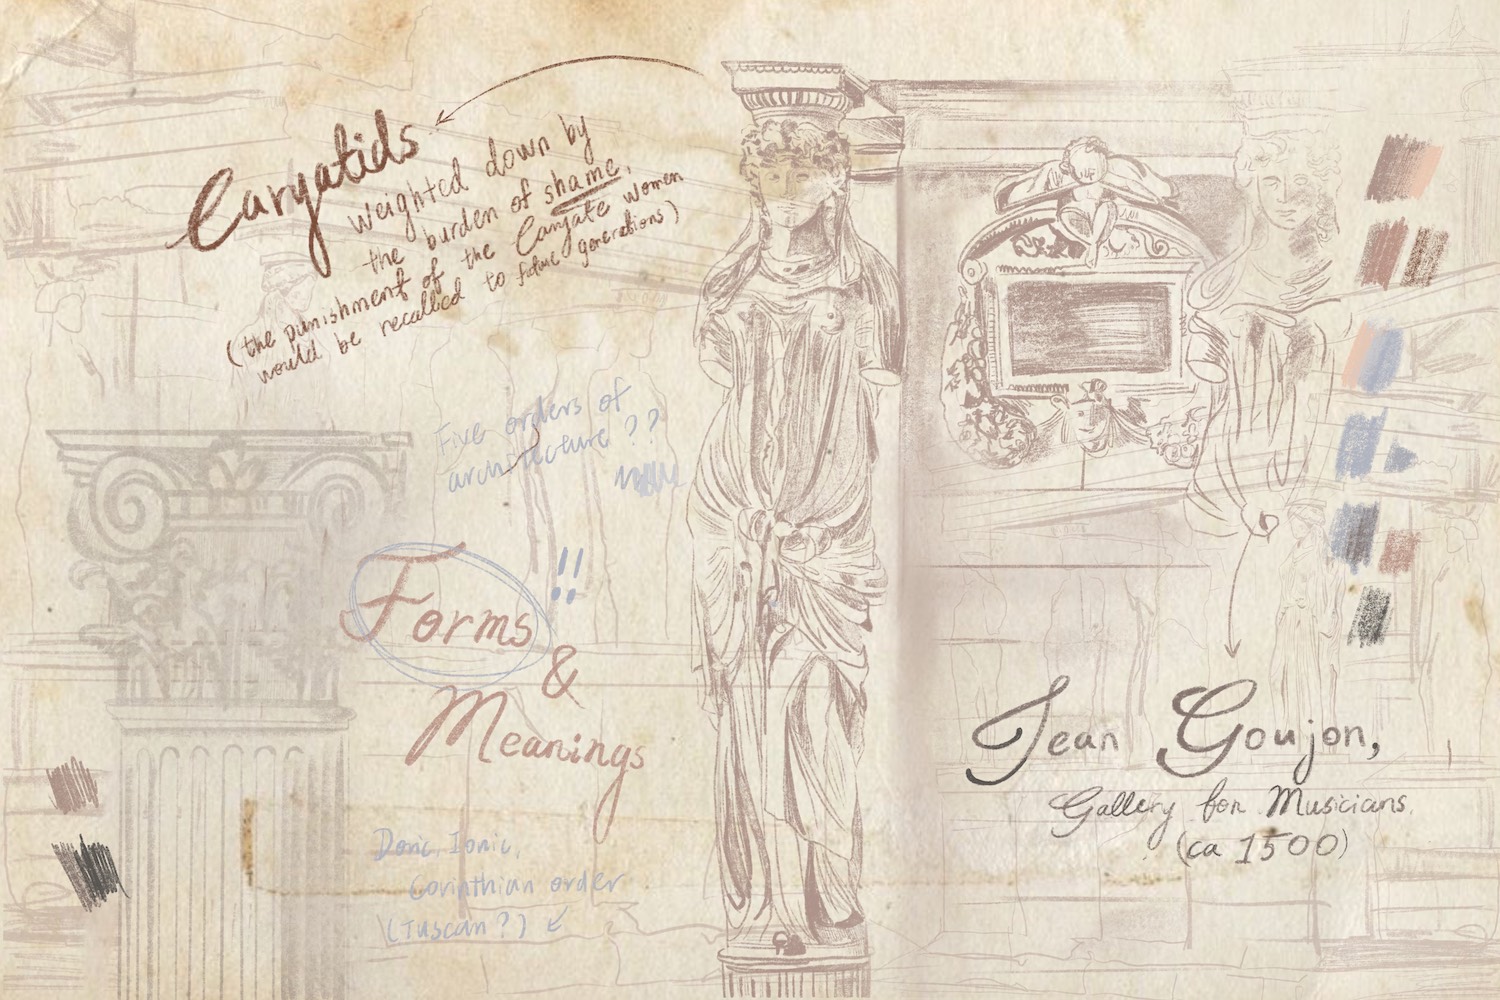 Caryatids
weighted down by
the burden of shame,
(the punishment of the Caryate women
would be recalled to future generations)
Five orders of
architecture ??
Forms !!
&
Meanings
Doric, Ionic,
Corinthian order
(Tuscan?)
Jean Goujon,
Gallery for Musicians.
(ca 1500)